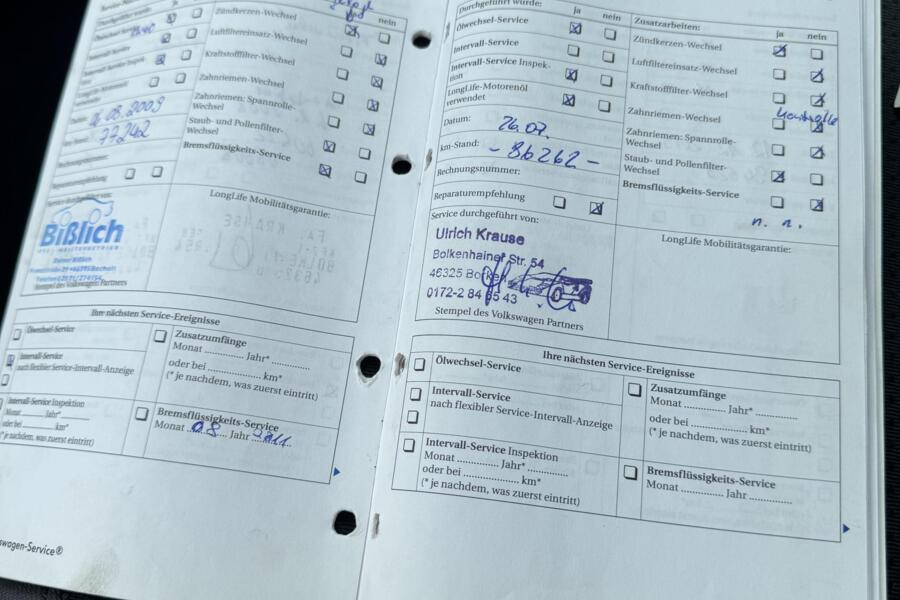 nein
Zündkerzen-Wechsel
Luftfiltereinsatz-Wechsel
Kraftstofffilter-Wechsel
Zahnriemen-Wechsel
Zahnriemen: Spannrolle-
Wechsel
Staub- und Pollenfilter-
Wechsel
Bremsflüssigkeits-Service
08.2009
77242
Rechnungsnummer:
Reparaturempfehlung
Service durchgeführt von:
Bißlich
Stempel des Volkswagen Partners
LongLife Mobilitätsgarantie:
Ihre nächsten Service-Ereignisse
Ölwechsel-Service
Intervall-Service
nach flexibler Service-Intervall-Anzeige
Intervall-Service Inspektion
Monat ............ Jahr* ............
oder bei ............ km*
(* je nachdem, was zuerst eintritt)
Zusatzumfänge
Monat ............ Jahr* ............
oder bei ............ km*
(* je nachdem, was zuerst eintritt)
Bremsflüssigkeits-Service
Monat 08 Jahr 2011
wagen-Service®
Durchgeführt wurde:
ja nein
Ölwechsel-Service
Intervall-Service
Intervall-Service Inspek-
tion
LongLife-Motorenöl
verwendet
Datum: 26.07.
km-Stand: - 86262 -
Rechnungsnummer:
Reparaturempfehlung
Service durchgeführt von:
Ulrich Krause
Bolkenhainer Str. 54
46325 Borken
0172-2 84 65 43
Stempel des Volkswagen Partners
Zusatzarbeiten:
ja nein
Zündkerzen-Wechsel
Luftfiltereinsatz-Wechsel
Kraftstofffilter-Wechsel
Zahnriemen-Wechsel Kontrolle
Zahnriemen: Spannrolle-
Wechsel
Staub- und Pollenfilter-
Wechsel
Bremsflüssigkeits-Service
n. n.
LongLife Mobilitätsgarantie:
Ihre nächsten Service-Ereignisse
Ölwechsel-Service
Intervall-Service
nach flexibler Service-Intervall-Anzeige
Intervall-Service Inspektion
Monat ............ Jahr* ............
oder bei ............ km*
(* je nachdem, was zuerst eintritt)
Zusatzumfänge
Monat ............ Jahr* ............
oder bei ............ km*
(* je nachdem, was zuerst eintritt)
Bremsflüssigkeits-Service
Monat ............ Jahr ............